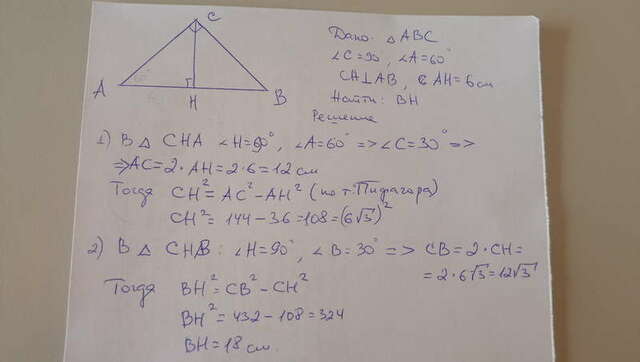 C
A
H
B
Дано: △ ABC
∠C=90, ∠A=60°
CH⊥AB, AH=6см
Найти: BH
Решение
1) В △ CHA ∠H=90°, ∠A=60° => ∠C=30° =>
=> AC=2·AH=2·6=12см
Тогда CH²=AC²-AH² (по т. Пифагора)
CH²=144-36=108=(6√3)²
2) В △ CHB: ∠H=90°, ∠B=30° => CB=2·CH=
=2·6√3=12√3
Тогда BH²=CB²-CH²
BH²=432-108=324
BH=18 см.